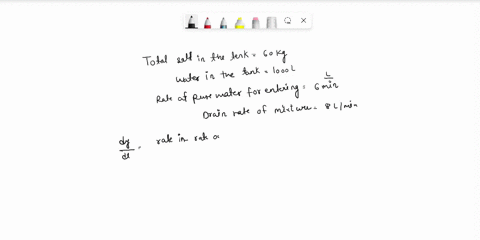 Total salt in the tank = 60 kg
water in the tank = 1000 L
Rate of pure water for entering = 6 L/min
Drain rate of mixture = 8 L/min
dy/dt = rate in rate o